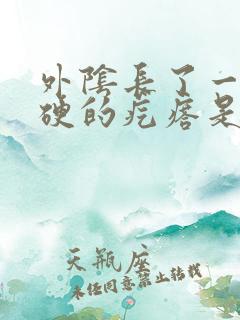 外陰長了一
硬的疙瘩是
天瓶座
未任同意禁止转载